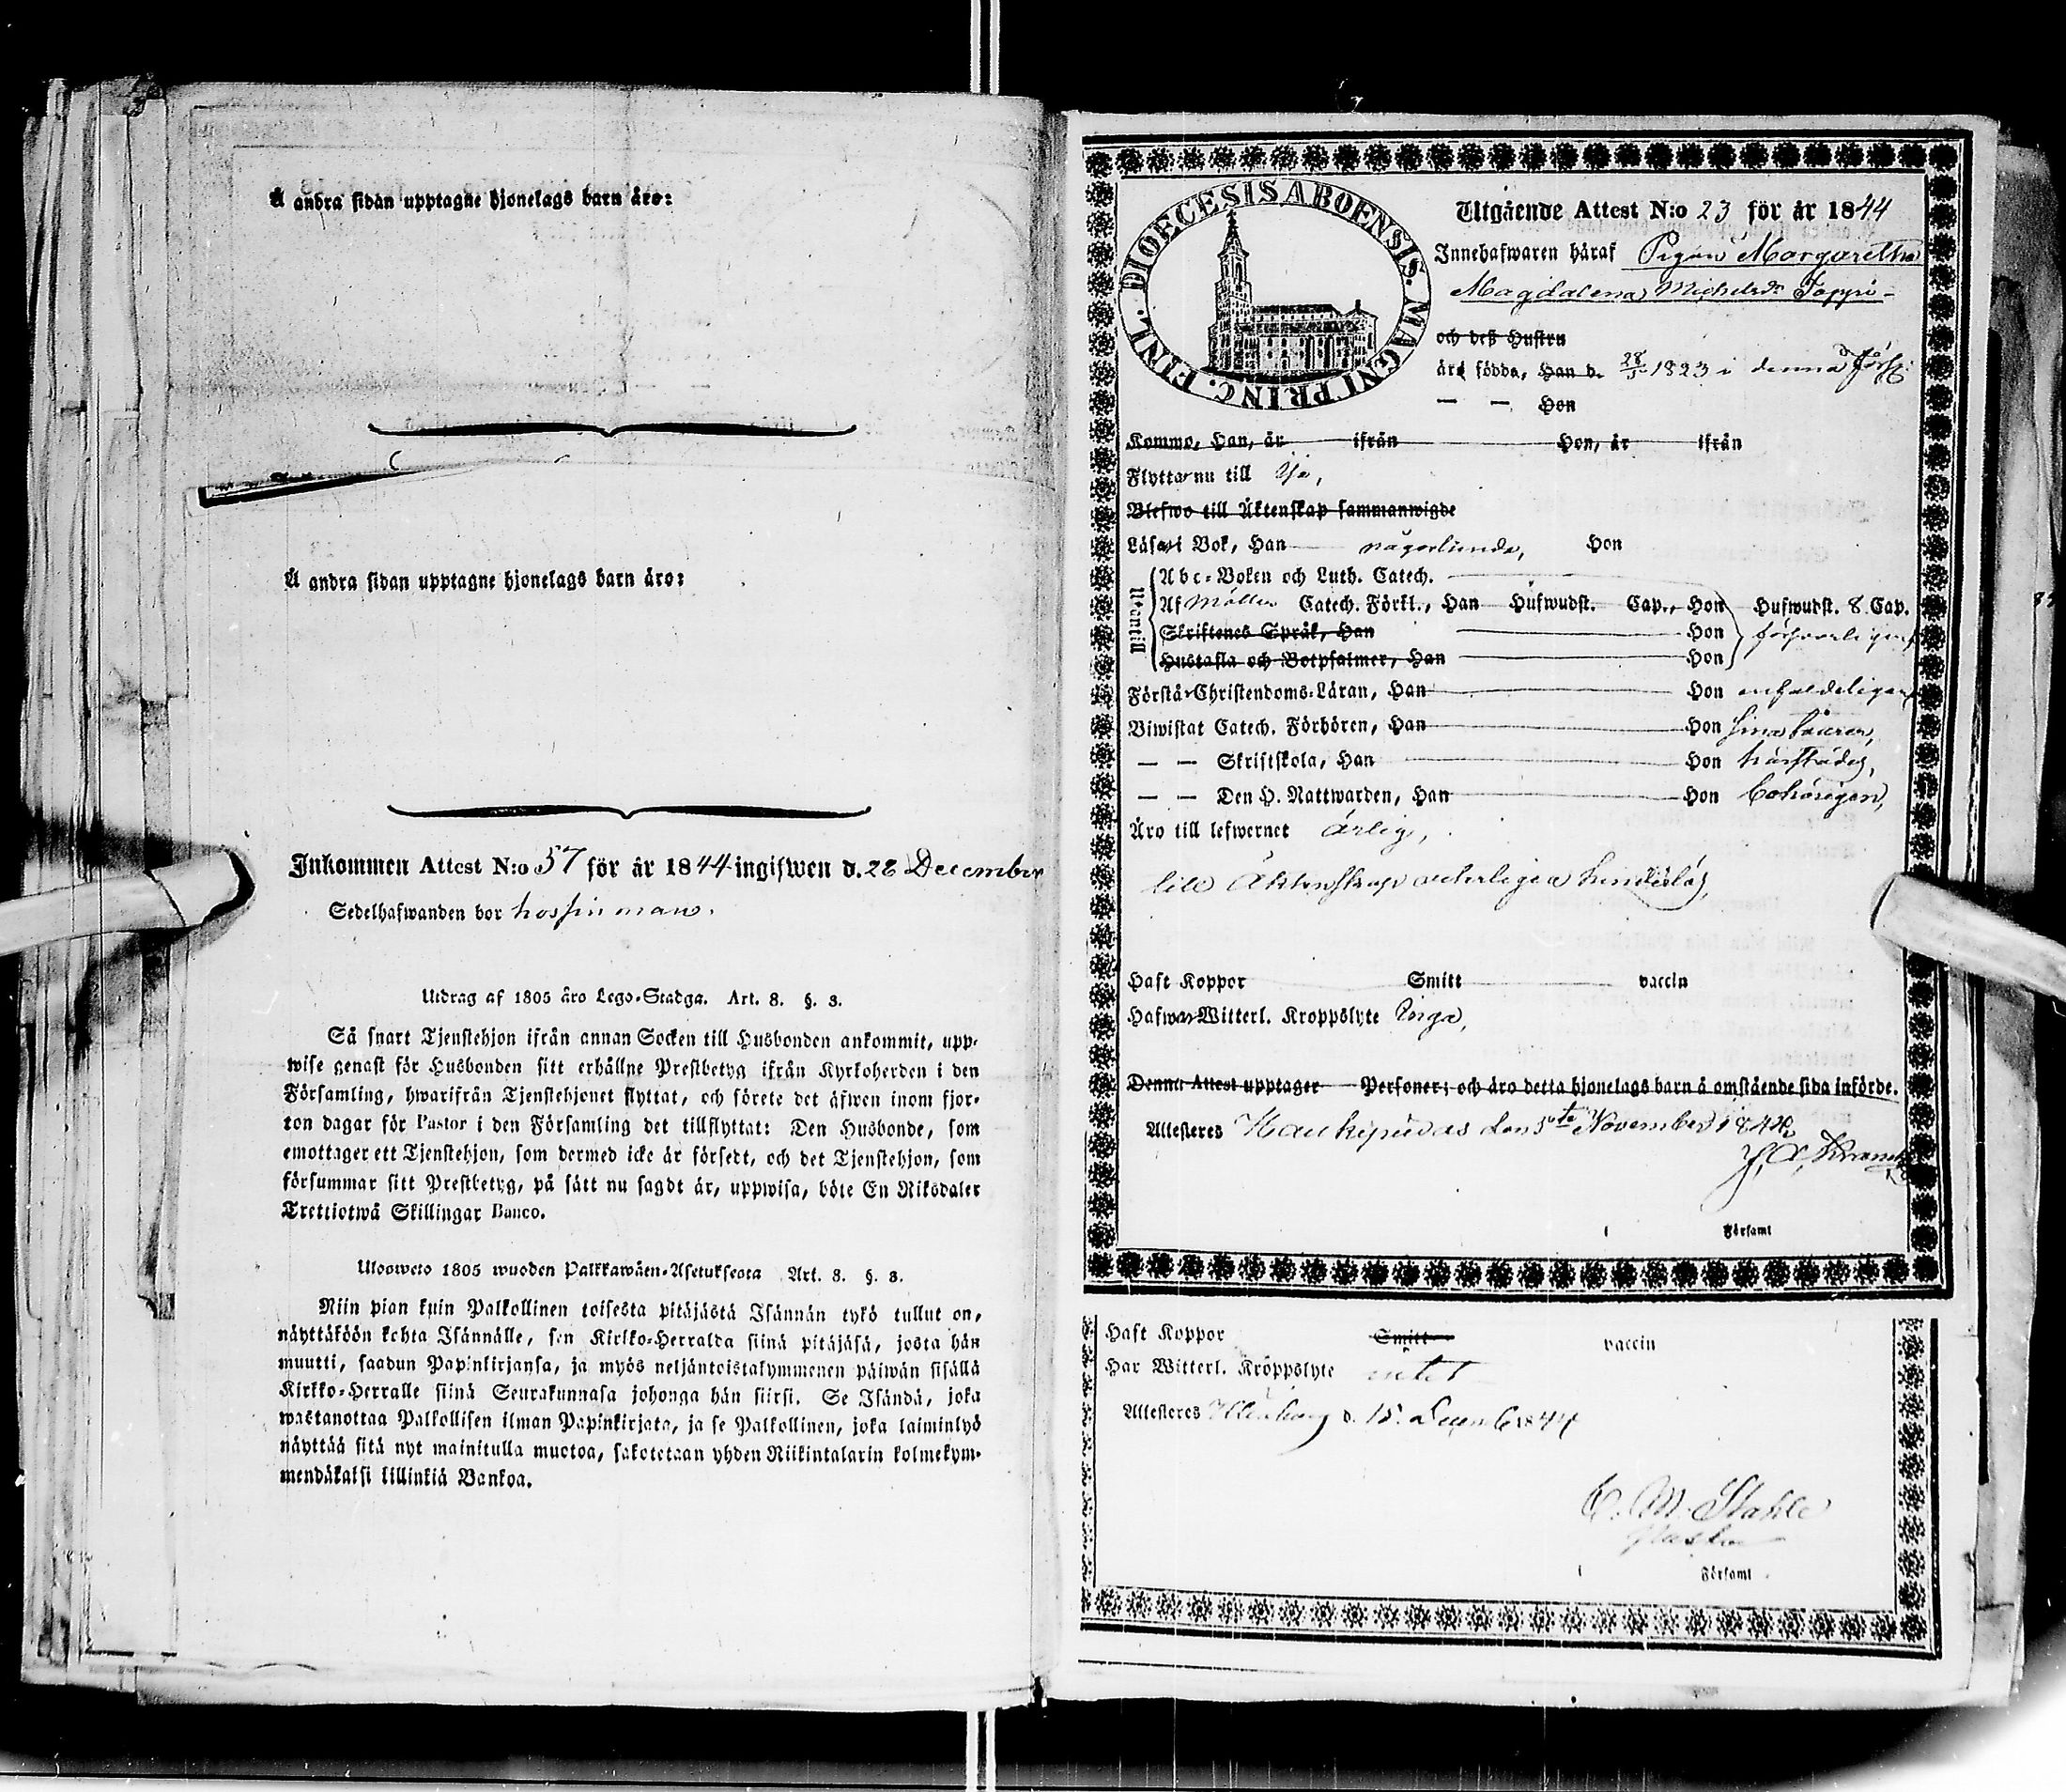 Å andra sidan upptagne hjonelags barn äro:
Å andra sidan upptagne hjonelags barn äro:
Inkommen Attest N:o 57 för år 1844 ingifwen d. 28 December
Sedelhafwanden bor hos sin man.
Utdrag af 1805 års Lego-Stadga. Art. 8. §. 3.
Så snart Tjenstehjon ifrån annan Socken till Husbonden ankommit, upp-
wise genast för Husbonden sitt erhållne Prestbetyg ifrån Kyrkoherden i den
Församling, hwarifrån Tjenstehjonet flyttat, och förete det äfwen inom fjor-
ton dagar för Pastor i den Församling det tillflyttat: Den Husbonde, som
emottager ett Tjenstehjon, som dermed icke är försedt, och det Tjenstehjon, som
försummar sitt Prestbetyg, på sätt nu sagdt är, uppwisa, böte En Riksdaler
Trettiotwå Skillingar Banco.
Ulosweto 1805 wuoden Palkkawäen-Asetuksesta Art. 8. §. 3.
Niin pian kuin Palkollinen toisesta pitäjästä Isännän tykö tullut on,
näyttäköön kohta Isännälle, sen Kirkko-Herralda siinä pitäjäsä, josta hän
muutti, saadun Papinkirjansa, ja myös neljäntoistakymmenen päiwän sisällä
Kirkko-Herralle siinä Seurakunnasa johonga hän siirsi. Se Isändä, joka
wastanottaa Palkollisen ilman Papinkirjata, ja se Palkollinen, joka laiminlyö
näyttää sitä nyt mainitulla muotoa, sakotetaan yhden Riikintalarin kolmekym-
mendäkaksi killinkiä Bankoa.
DIOECESIS ABOENSIS. MAGNI PRINC. FINL.
Utgående Attest N:o 23 för år 1844
Innehafwaren häraf Pigan Margaretha
Magdalena Michelsdr Toppi
och deß Hustru
äro födde, Han d. 28/5 1823 i denna Förs:
— — Hon
Kommo, Han, år ifrån Hon, år ifrån
Flytta nu till Ijo,
Blefwo till Äktenskap sammanwigde
Läsa i Bok, Han någorlunda, Hon
Utantill
Abc-Boken och Luth. Catech.
Af Möllers Catech. Förkl., Han Hufwudst. Cap., Hon Hufwudst. 8 Cap.
Skriftenes Språk, Han Hon försvarligen,
Hustafla och Botpsalmer, Han Hon
Förstå Christendoms-Läran, Han Hon
Biwistat Catech. Förhören, Han Hon
— — Skriftskola, Han Hon härstädes,
— — Den H. Nattwarden, Han Hon behörigen,
Äro till lefwernet ärlig,
till Äktenskap
Haft Koppor Smitt vaccin
Hafwa Witterl. Kroppslyte Inga,
Denna Attest upptager Personer; och äro detta hjonelags barn å omstående sida införde.
Attesteras Haukipudas den November 1844
Församl
Haft Koppor Smitt vaccin
Har Witterl. Kroppslyte intet
Attesteras Uleåborg d. 15 Decemb 1844
C. M. Stahle
Pastor
Församl.